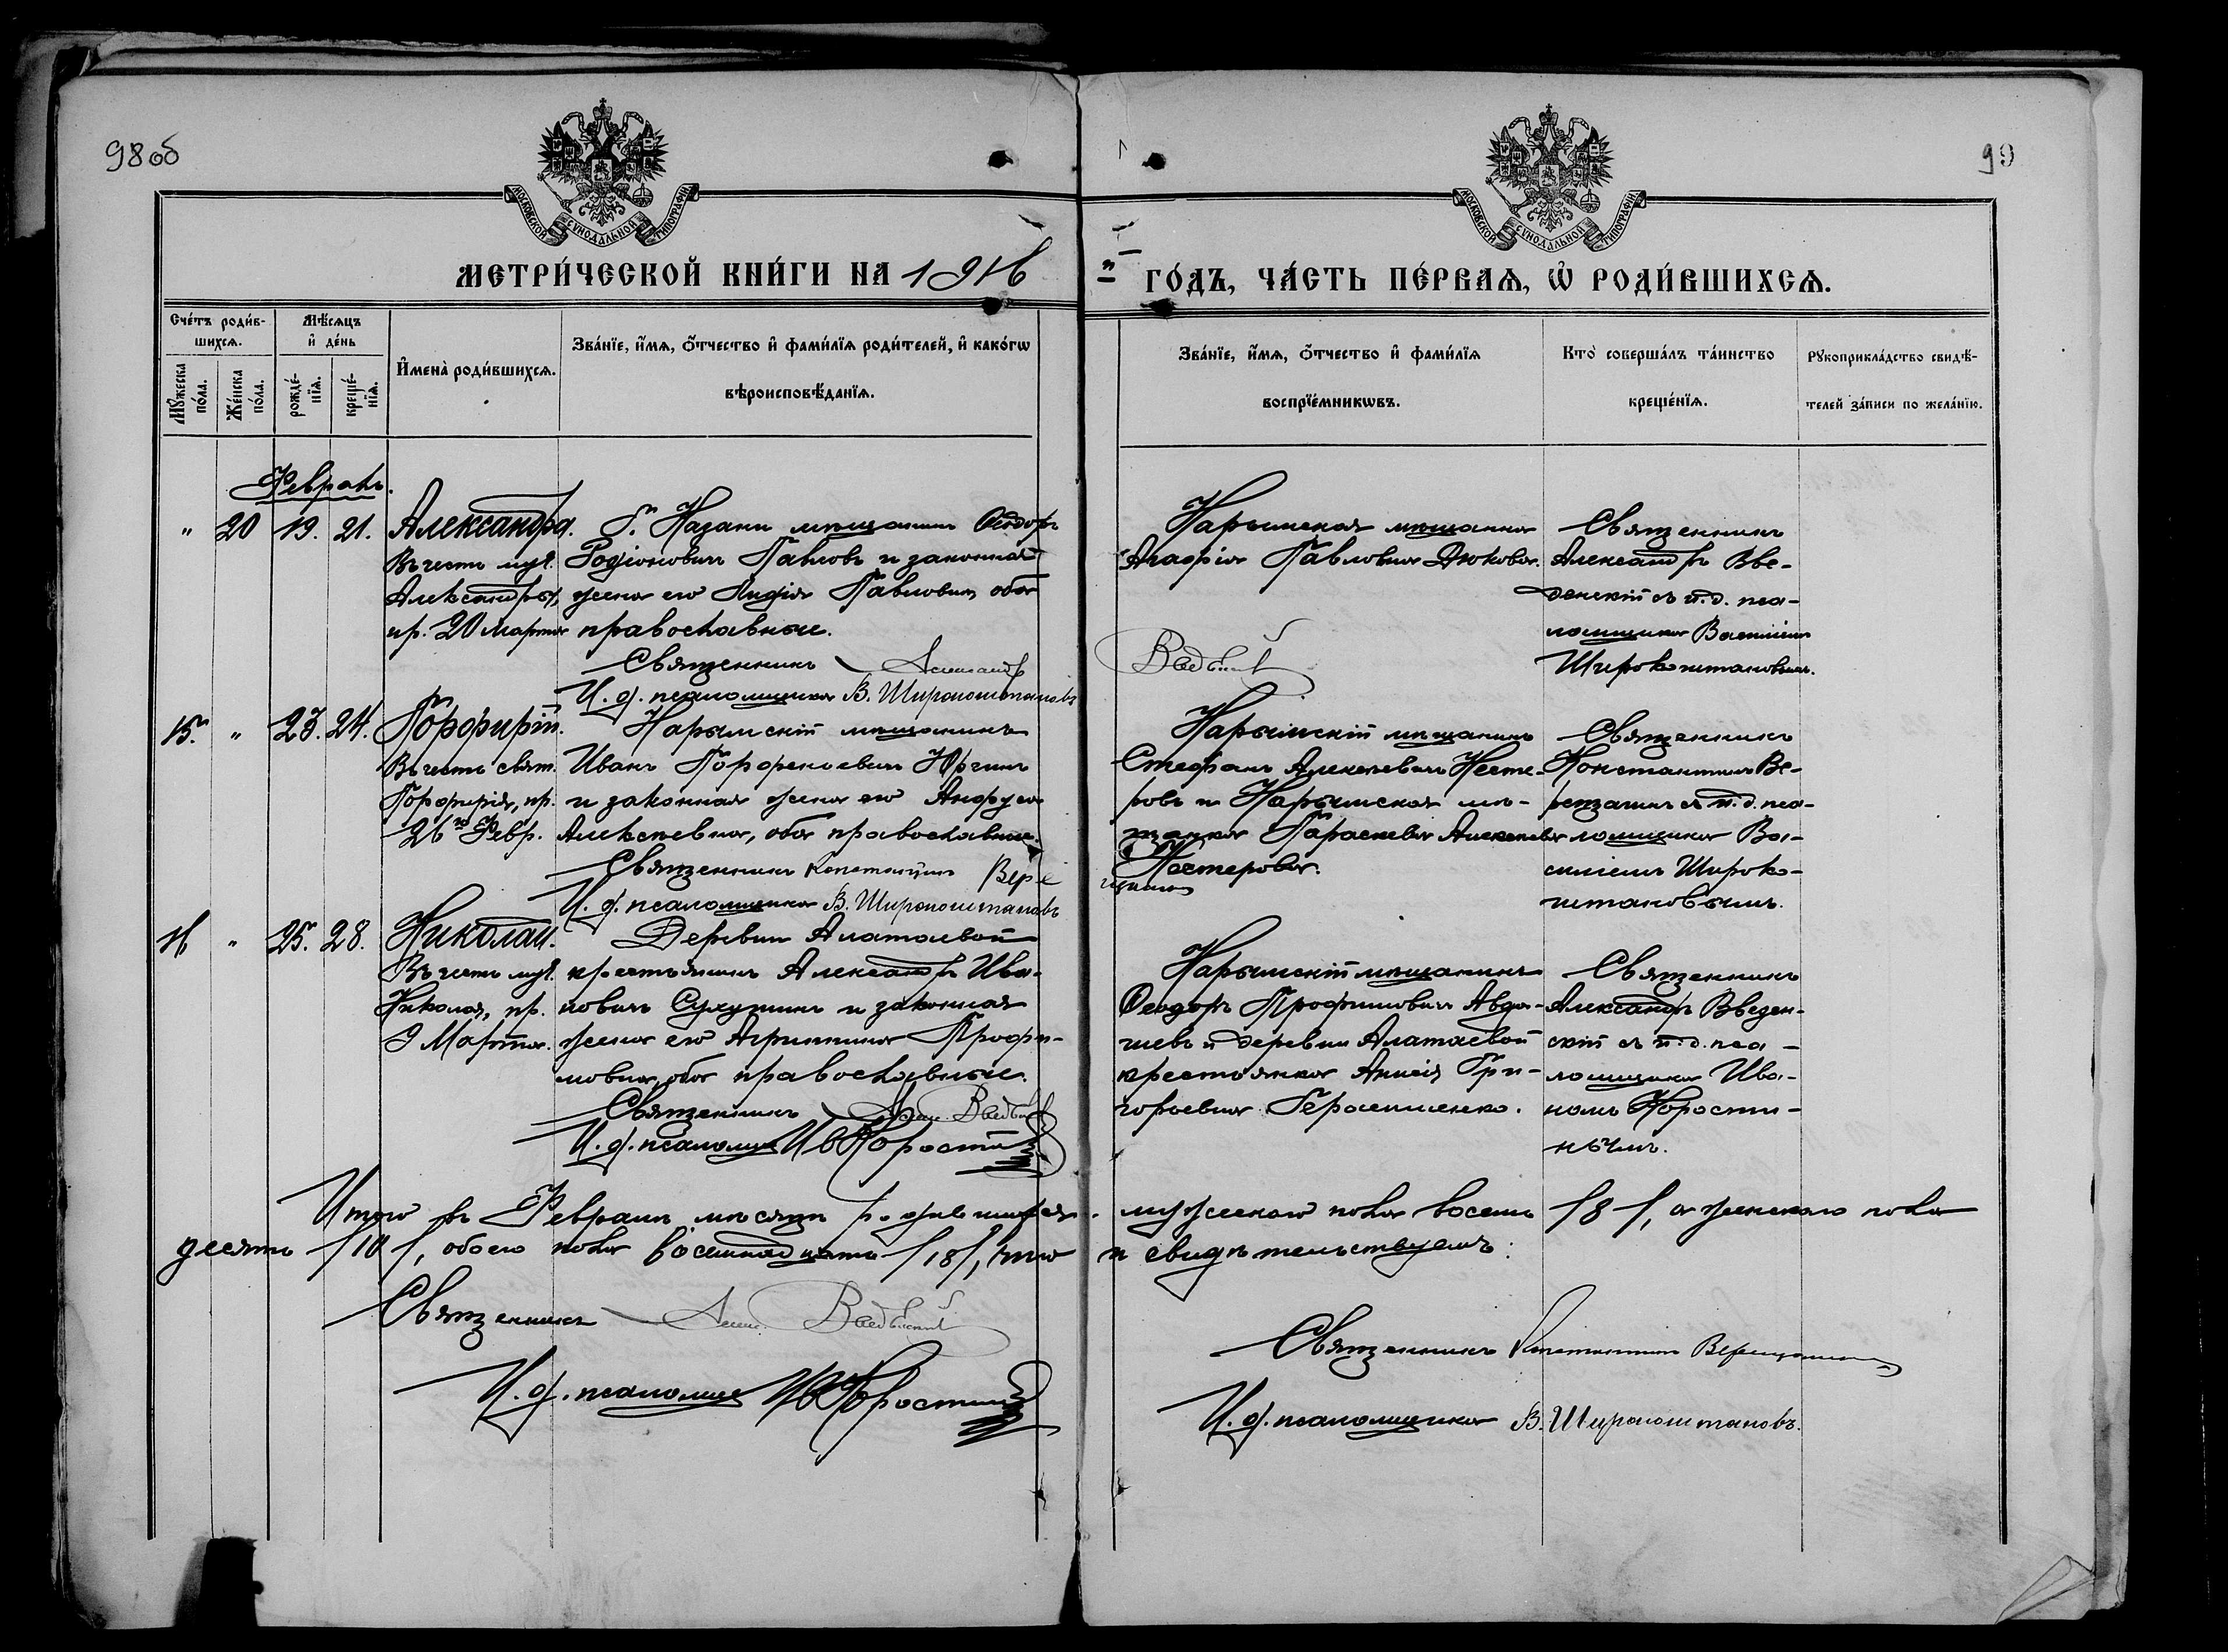 98об
99
МОСКОВСКОЙ СУНОДАЛЬНОЙ ТИПОГРАФІИ
МОСКОВСКОЙ СУНОДАЛЬНОЙ ТИПОГРАФІИ
МЕТРИ́ЧЕСКОЙ КНИ́ГИ НА 1916
ГО́ДЪ, ЧА́СТЬ ПЕ́РВАѦ, Ѽ РОДИ́ВШИХСѦ.
Сче́тъ роди́в-
шихсѧ.
Мꙋ́жеска
по́ла.
Же́нска
по́ла.
Мѣ́сѧцъ
и҆ де́нь
рожде́-
нїѧ.
креще́-
нїѧ.
И҆мена̀ роди́вшихсѧ.
Зва́нїе, и҆́мѧ, ѻ҆́тчество и҆ фами́лїѧ роди́телей, и҆ како́гѡ
вѣроисповѣ́данїѧ.
Зва́нїе, и҆́мѧ, ѻ҆́тчество и҆ фами́лїѧ
воспрїе́мникѡвъ.
Кто̀ соверша́лъ та́инство
креще́нїѧ.
Рꙋкоприкла́дство свидѣ́-
телей за́писи по жела́нїю.
Февраль.
" 20 19. 21. Александра.
Въ честь муч.
Александры,
пр. 20 Марта
Г. Казани мѣщанинъ Ѳеодоръ
Родіоновичъ Павловъ и законная
жена его Лидія Павловна, оба
православные.
Священникъ Александръ Введенскій
И. д. псаломщика В. Широкоштановъ
Нарымская мѣщанка
Агафія Павловна Дюкова.
Священникъ
Александръ Вве-
денскій съ и. д. пса-
ломщика Василіемъ
Широкоштановымъ.
15. " 23. 24. Порфирій.
Въ честь свят.
Порфирія, пр.
26го Февр.
Нарымскій мѣщанинъ
Иванъ Порфирьевичъ
и законная жена его
Алексѣевна, оба православные.
Священникъ Константинъ Верещагинъ
И. д. псаломщика В. Широкоштановъ
Нарымскій мѣщанинъ
Стефанъ Алексѣевичъ Несте-
ровъ и Нарымская мѣ-
щанка Параскева Алексѣевна
Нестерова.
Священникъ
Константинъ Ве-
рещагинъ съ и. д. пса-
ломщика Ва-
силіемъ Широко-
штановымъ.
16 " 25. 28. Николай.
Въ честь муч.
Николая, пр.
9 Марта.
Деревни Алатаевой
крестьянинъ Александръ Ива-
новичъ Сухушинъ и законная
жена его Агриппина Трофи-
мовна, оба православные.
Священникъ Алек. Введенскій
И. д. псаломщ. Ив Коростин
Нарымскій мѣщанинъ
Ѳеодоръ Трофимовичъ
и деревни Алатаевой
крестьянка Анисія Гри-
горьевна Герасименко.
Священникъ
Александръ Введен-
скій съ и. д. пса-
ломщика Ива-
номъ Корости-
нымъ.
Итого въ Февралѣ мѣсяцѣ родившихся мужескаго пола восемь /8/, а женскаго пола
десять /10/, обоего пола восемнадцать /18/, что и свидѣтельствуемъ:
Священникъ Алек. Введенскій
И. д. псаломщ. Ив Коростин
Священникъ Константинъ Верещагинъ
И. д. псаломщика В. Широкоштановъ.